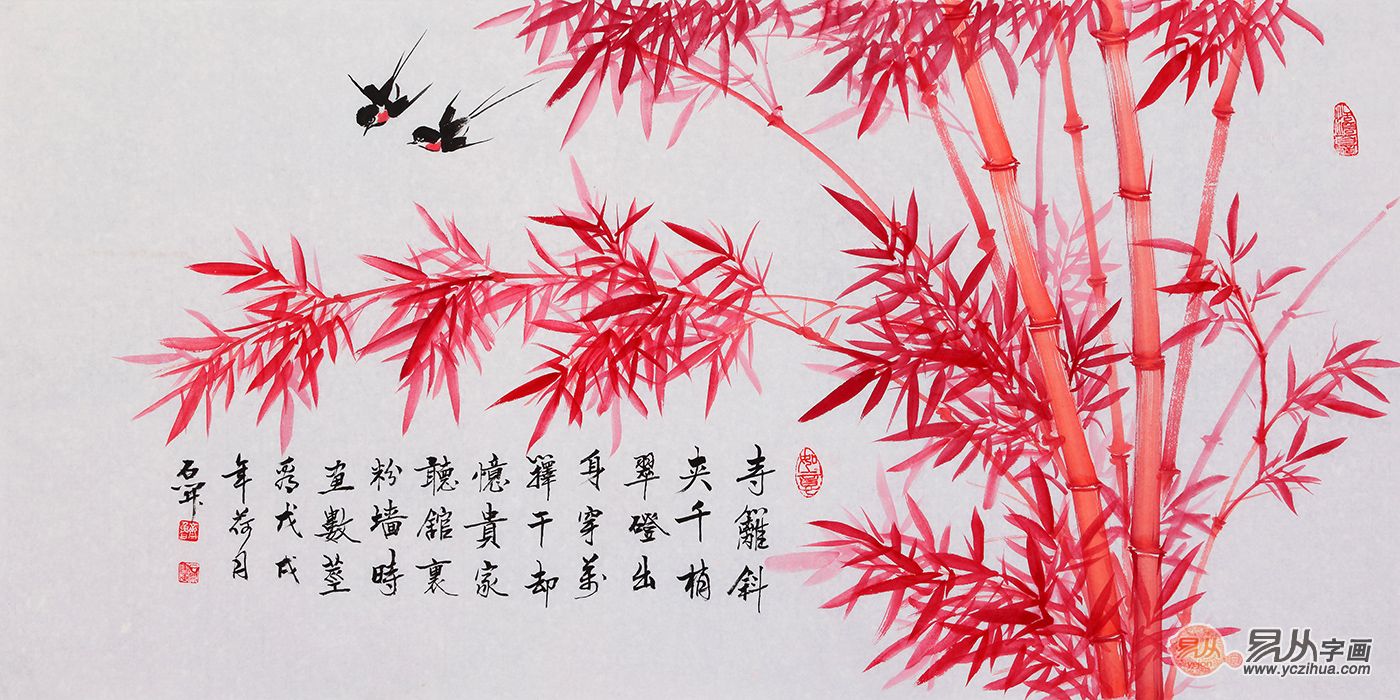 寺籬斜
夾千梢
翠磴出
身穿萬
籜干却
憶貴家
聽舘裏
粉墙時
畫數莖
戊戌
年荷月
易从
易从字画
www.yczihua.com